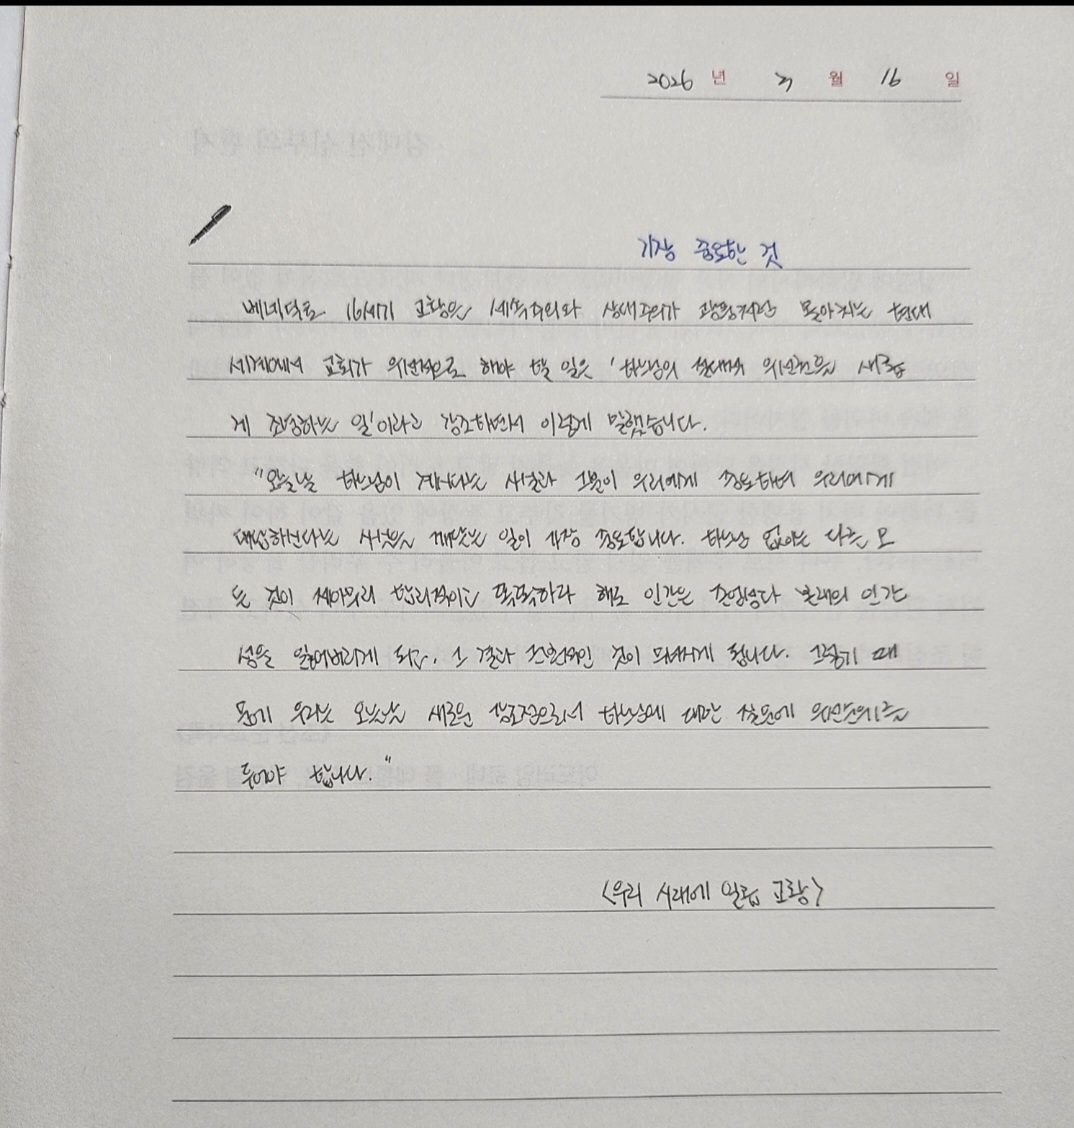 2026 년 3 월 16 일
가장 중요한 것
베네딕토 16세기 교황은 세속주의와 상대주의가 광풍처럼 몰아치는 현대
세계에서 교회가 우선적으로 해야 할 일은 '하느님의 우선권을 새롭
게 조명하는 일'이라고 강조하면서 이렇게 말했습니다.
"오늘날 하느님이 계시다는 사실과 그분이 우리에게 중요하며 우리에게
대답하신다는 사실을 깨닫는 일이 가장 중요합니다. 하느님 없이는 다른 모
든 것이 제아무리 합리적이고 똑똑하다 해도 인간은 존엄성과 본래의 인간
성을 잃어버리게 되고, 그 결과 본질적인 것이 무너지게 됩니다. 그렇기 때
문에 우리는 오늘날 새로운 강조점으로서 하느님에 대한 질문에 우선순위를
두어야 합니다."
<우리 시대에 일곱 교황>